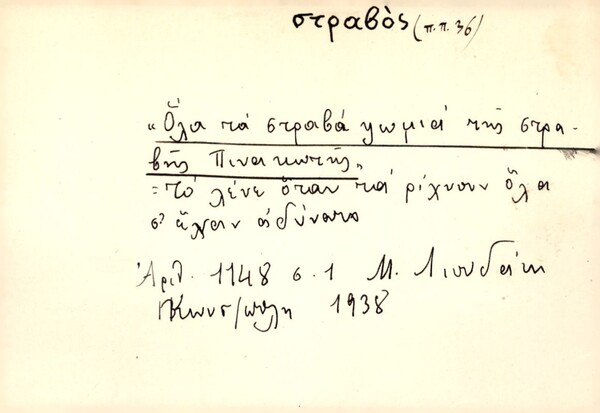 στραβὸς (π.π. 36)
"Ὅλα τὰ στραβὰ ψωμιὰ τῆς στρα-
βῆς Πινακωτῆς"
= τὸ λένε ὅταν τὰ ρίχνουν ὅλα
σ' ἕναν ἀδύνατο
Ἀριθ. 1148 σ. 1 Μ. Λιουδάκη
Κωνσ/πολη 1938